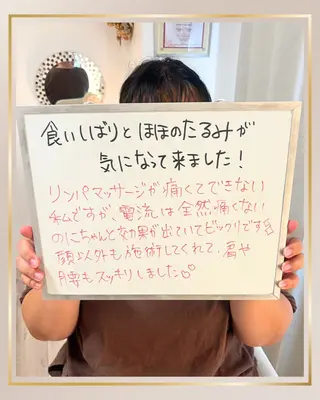 食いしばりとほほのたるみが
気になって来ました！
リンパマッサージが痛くてできない
私ですが、電流は全然痛くない
のにちゃんと効果が出ていてビックリです
顔以外も施術してくれて、肩や
腰もスッキリしました